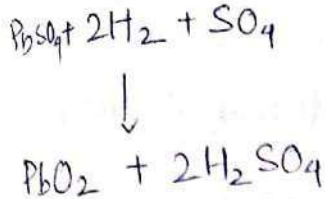 PbSO4+ 2H2 + SO4
↓
PbO2 + 2H2SO4